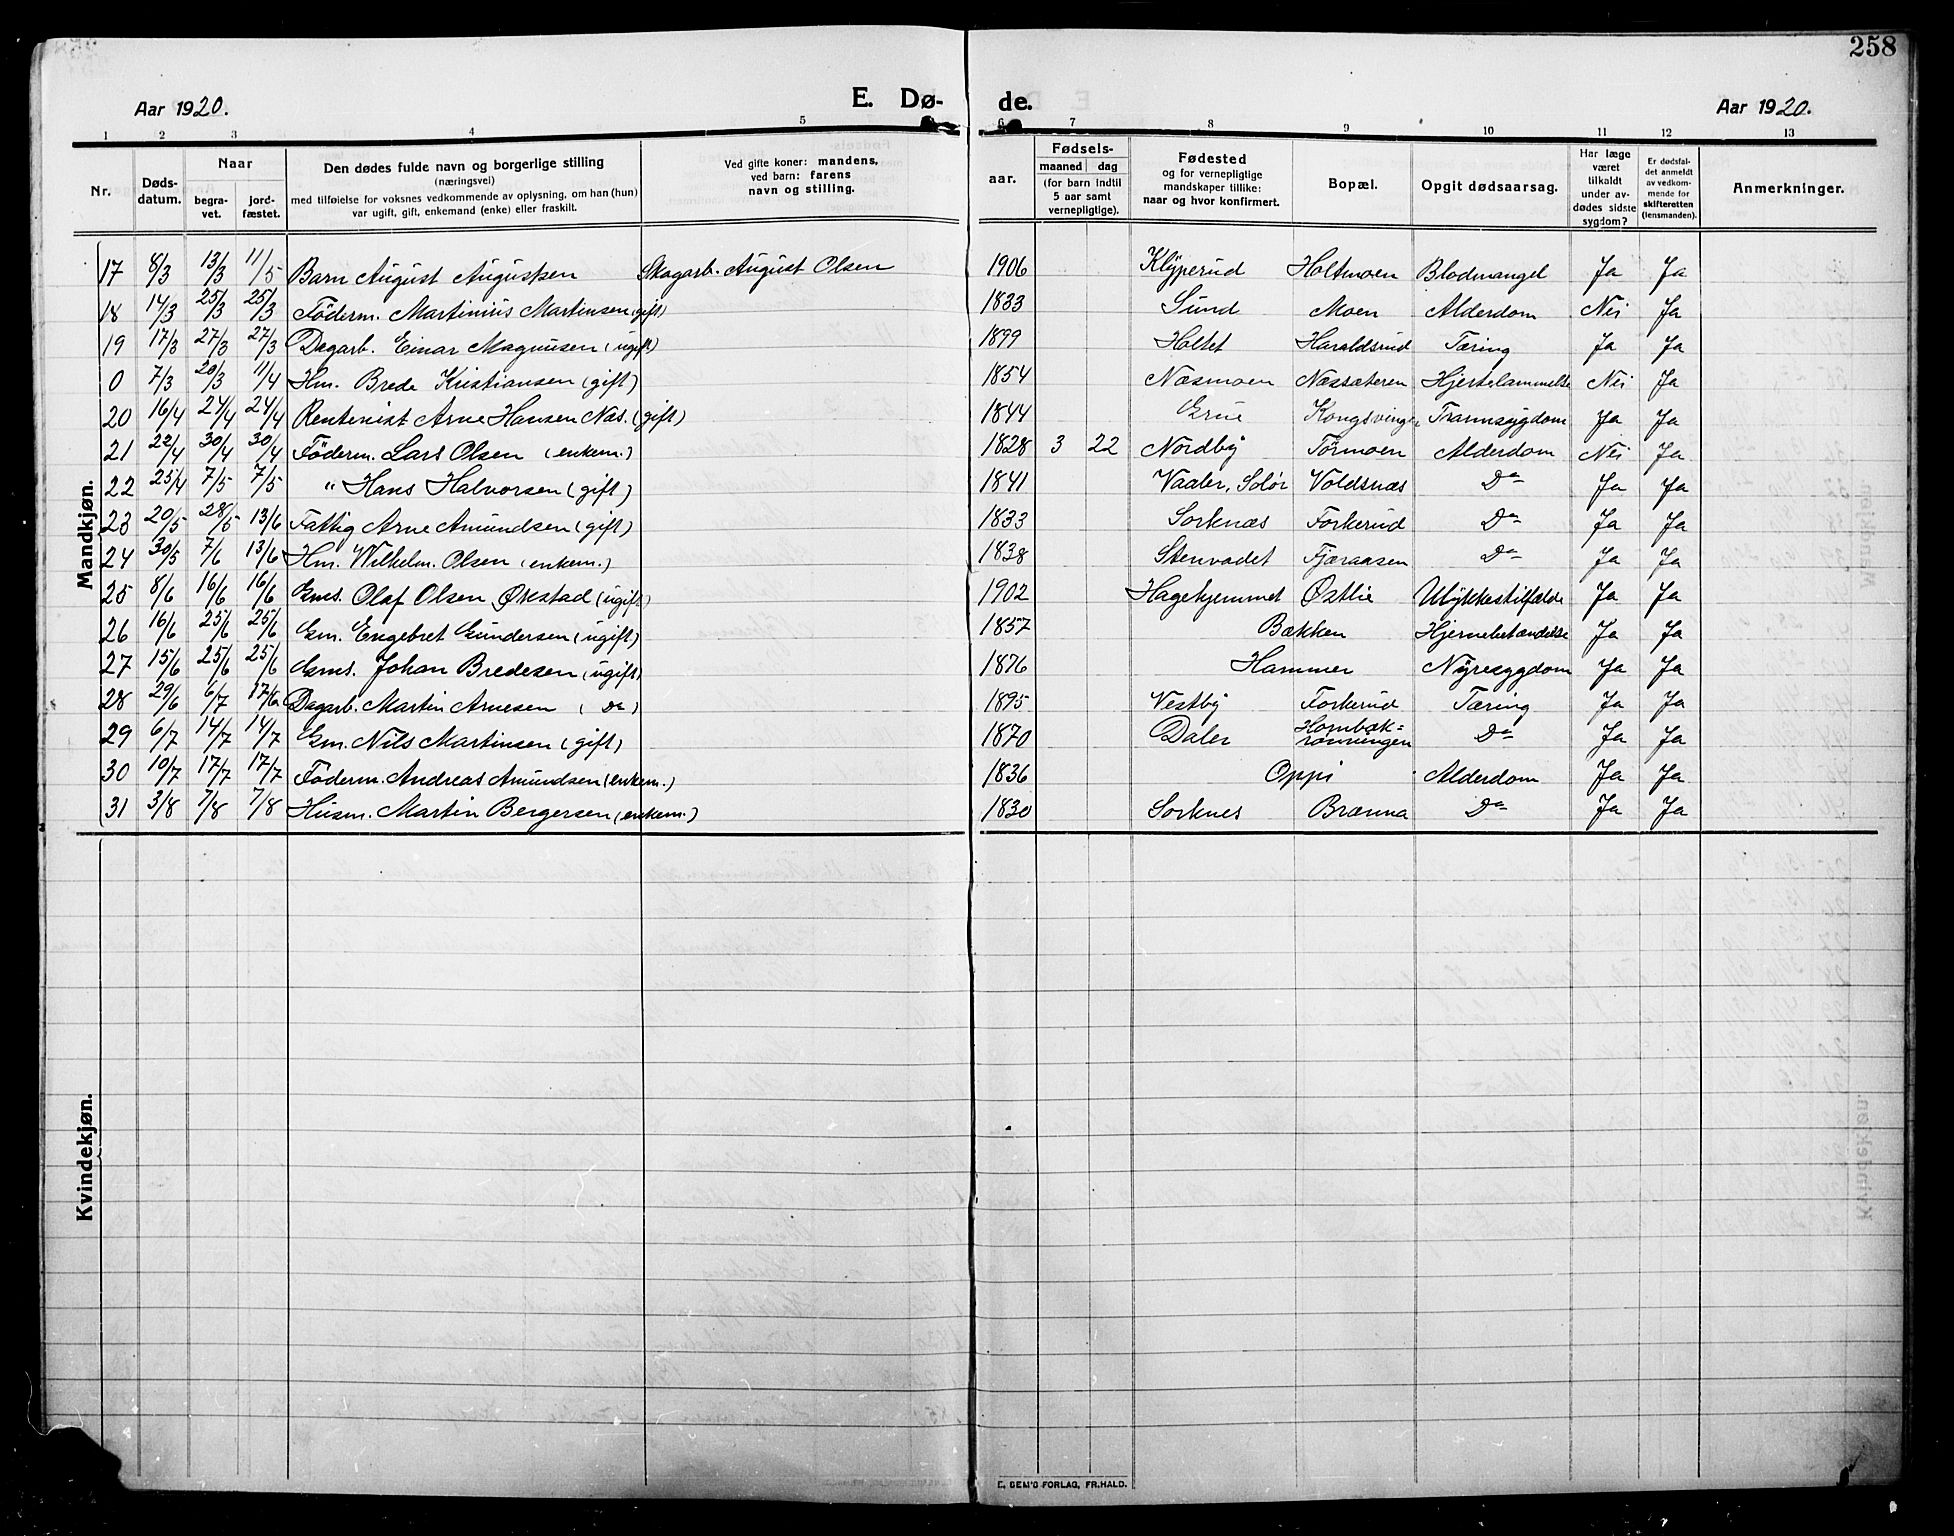 258
Aar 1920. E. Dø- de. Aar 1920.
1 2 3 4 5 6 7 8 9 10 11 12 13
Nr. Dødsdatum. Naar begravet. jordfæstet. Den dødes fulde navn og borgerlige stilling (næringsvei) med tilføielse for voksnes vedkommende av oplysning, om han (hun) var ugift, gift, enkemand (enke) eller fraskilt. Ved gifte koner: mandens, ved barn: farens navn og stilling. aar. Fødsels- maaned dag (for barn indtil 5 aar samt vernepligtige). Fødested og for vernepligtige mandskaper tillike: naar og hvor konfirmert. Bopæl. Opgit dødsaarsag. Har læge været tilkaldt under avdødes sidste sygdom? Er dødsfaldet anmeldt av vedkommende for skifteretten (lensmanden). Anmerkninger.
Mandkjøn.
17 8/3 13/3 11/5 Barn August Augustsen Skogarb. August Olsen 1906 Klyperud Holtmoen Blodmangel Ja Ja
18 14/3 25/3 25/3 Föderm. Martinius Martinsen (gift) 1833 Sund Moen Alderdom Nei Ja
19 17/3 27/3 27/3 Dagarb. Einar Magnusen (ugift) 1899 Holtet Haraldsrud Tæring Ja Ja
0 7/3 20/3 11/4 Hm. Brede Kristiansen (gift) 1854 Næsmoen Næssæteren Hjertelammelse Nei Ja
20 16/4 24/4 24/4 Rentenist Arne Hansen Næs. (gift) 1844 Grue Kongsvinger Tarmsygdom Ja Ja
21 22/4 30/4 30/4 Föderm. Lars Olsen (enkem.) 1828 3 22 Nordby Törmoen Alderdom Nei Ja
22 25/4 7/5 7/5 " Hans Halvorsen (gift) 1841 Vaaler, Solør Voldsnæs Do Ja Ja
23 20/5 28/5 13/6 Fattig Arne Amundsen (gift) 1833 Sorknæs Forkerud Do Ja Ja
24 30/5 7/6 13/6 Hm. Wilhelm. Olsen (enkem.) 1838 Stenvadet Fjæraasen Do Ja Ja
25 8/6 16/6 16/6 Gms. Olaf Olsen Økstad (ugift) 1902 Hagehjemmet Østlie Ulykkestilfælde Ja Ja
26 16/6 25/6 25/6 Gm. Engebret Gundersen (ugift) 1857 Bækken Hjernebetændelse Ja Ja
27 15/6 25/6 25/6 Gms. Johan Bredesen (ugift) 1876 Hammer Nyresygdom Ja Ja
28 29/6 6/7 Dagarb. Martin Arnesen (Do) 1895 Vestby Forkerud Tæring Ja Ja
29 6/7 14/7 14/7 Gm. Nils Martinsen (gift) 1870 Daler Hornbæk=rønningen Do Ja Ja
30 10/7 17/7 17/7 Föderm. Andreas Amundsen (enkem.) 1836 Oppi Alderdom Ja Ja
31 3/8 7/8 7/8 Husm. Martin Bergersen (enkem.) 1830 Sorknes Brænna Do Ja Ja
Kvindekjøn.
E. SEM'S FORLAG, FR.HALD.